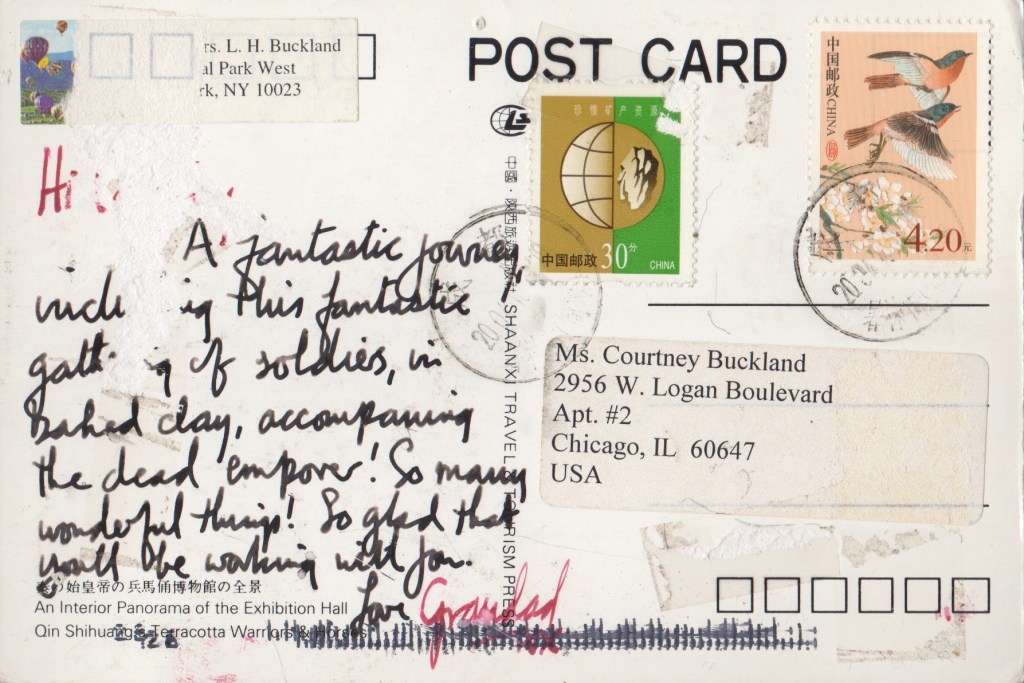 rs. L. H. Buckland
al Park West
rk, NY 10023
POST CARD
中国邮政 CHINA
4.20元
珍惜矿产资源
中国邮政 30分 CHINA
中國·陝西旅游出版社 SHAANXI TRAVEL & TOURISM PRESS
Hi
A fantastic journey,
inclu ing this fantastic
gath g of soldies, in
baked clay, accompaning
the dead emporer! So many
wonderful things! So glad that
you'll be working with Jon.
Love Grandad
Ms. Courtney Buckland
2956 W. Logan Boulevard
Apt. #2
Chicago, IL 60647
USA
秦の始皇帝の兵馬俑博物館の全景
An Interior Panorama of the Exhibition Hall
Qin Shihuang's Terracotta Warriors & Horses